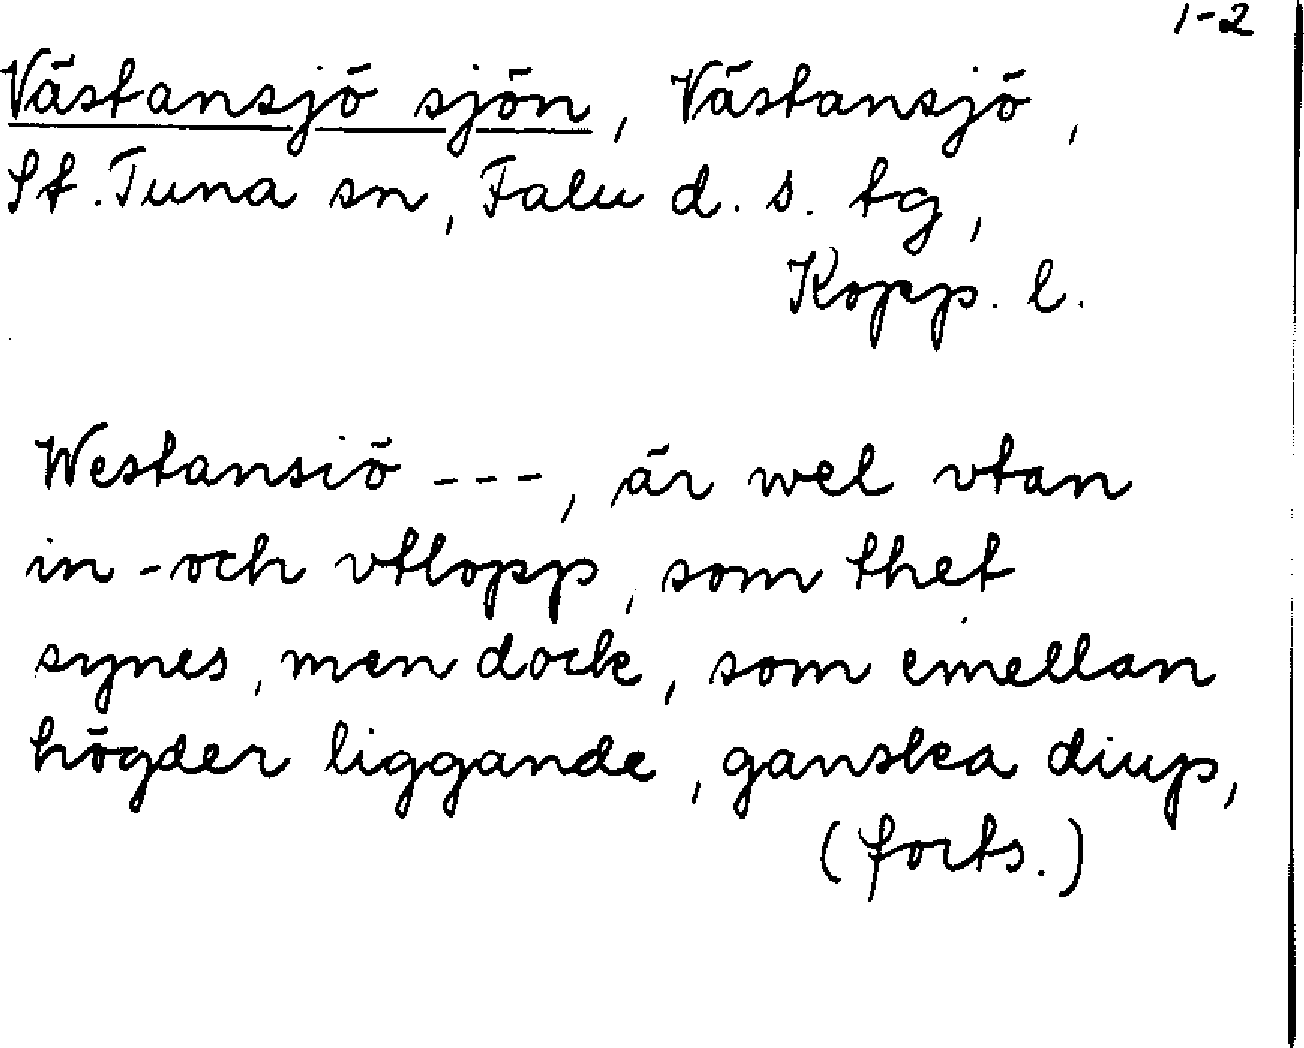 1-2
Västansjö sjön, Västansjö,
St. Tuna sn, Falu d. s. tg,
Kopp. l.
Westansiö ---, är wel vtan
in-och vtlopp, som thet
synes, men dock, som emellan
högder liggande, ganska diup,
(forts.)